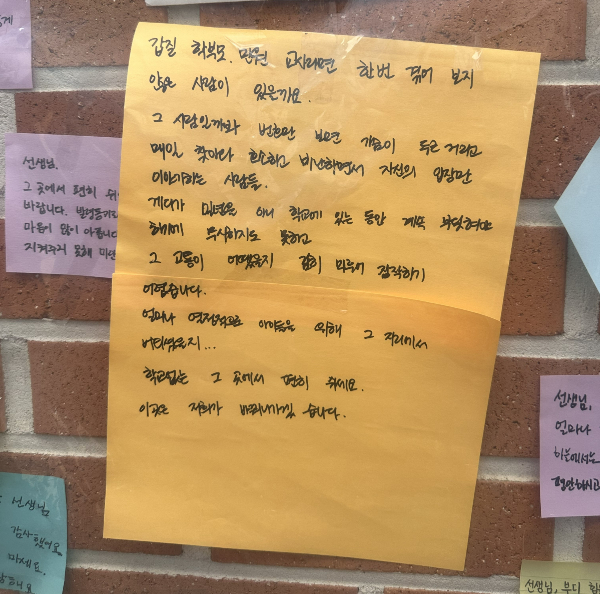 갑질 학부모. 민원 교사라면 한번 겪어 보지
않은 사람이 있을까요.
그 사람일까봐 번호만 보면 가슴이 두근거리고
매일 찾아와 호소하고 비난하면서 자신의 입장만
이야기하는 사람들.
게다가 미란은 아니 학교에 있는 동안 계속 부딪혀야
하기에 무시하지도 못하고
그 고통이 어땠을지 감히 미루어 짐작하기
어렵습니다.
얼마나 열정적으로 아이들을 위해 그 자리에서
버티셨을지...
학교없는 그 곳에서 편히 쉬세요.
이곳은 저희가 바꿔나가겠습니다.
선생님.
그 곳에서 편히 쉬
바랍니다.
마음이 많이 아픕니다
지켜주지 못해 미안
선생님
감사했어요
마세요.
선생님,
얼마나
하늘에서는
편안하시고
선생님, 부디